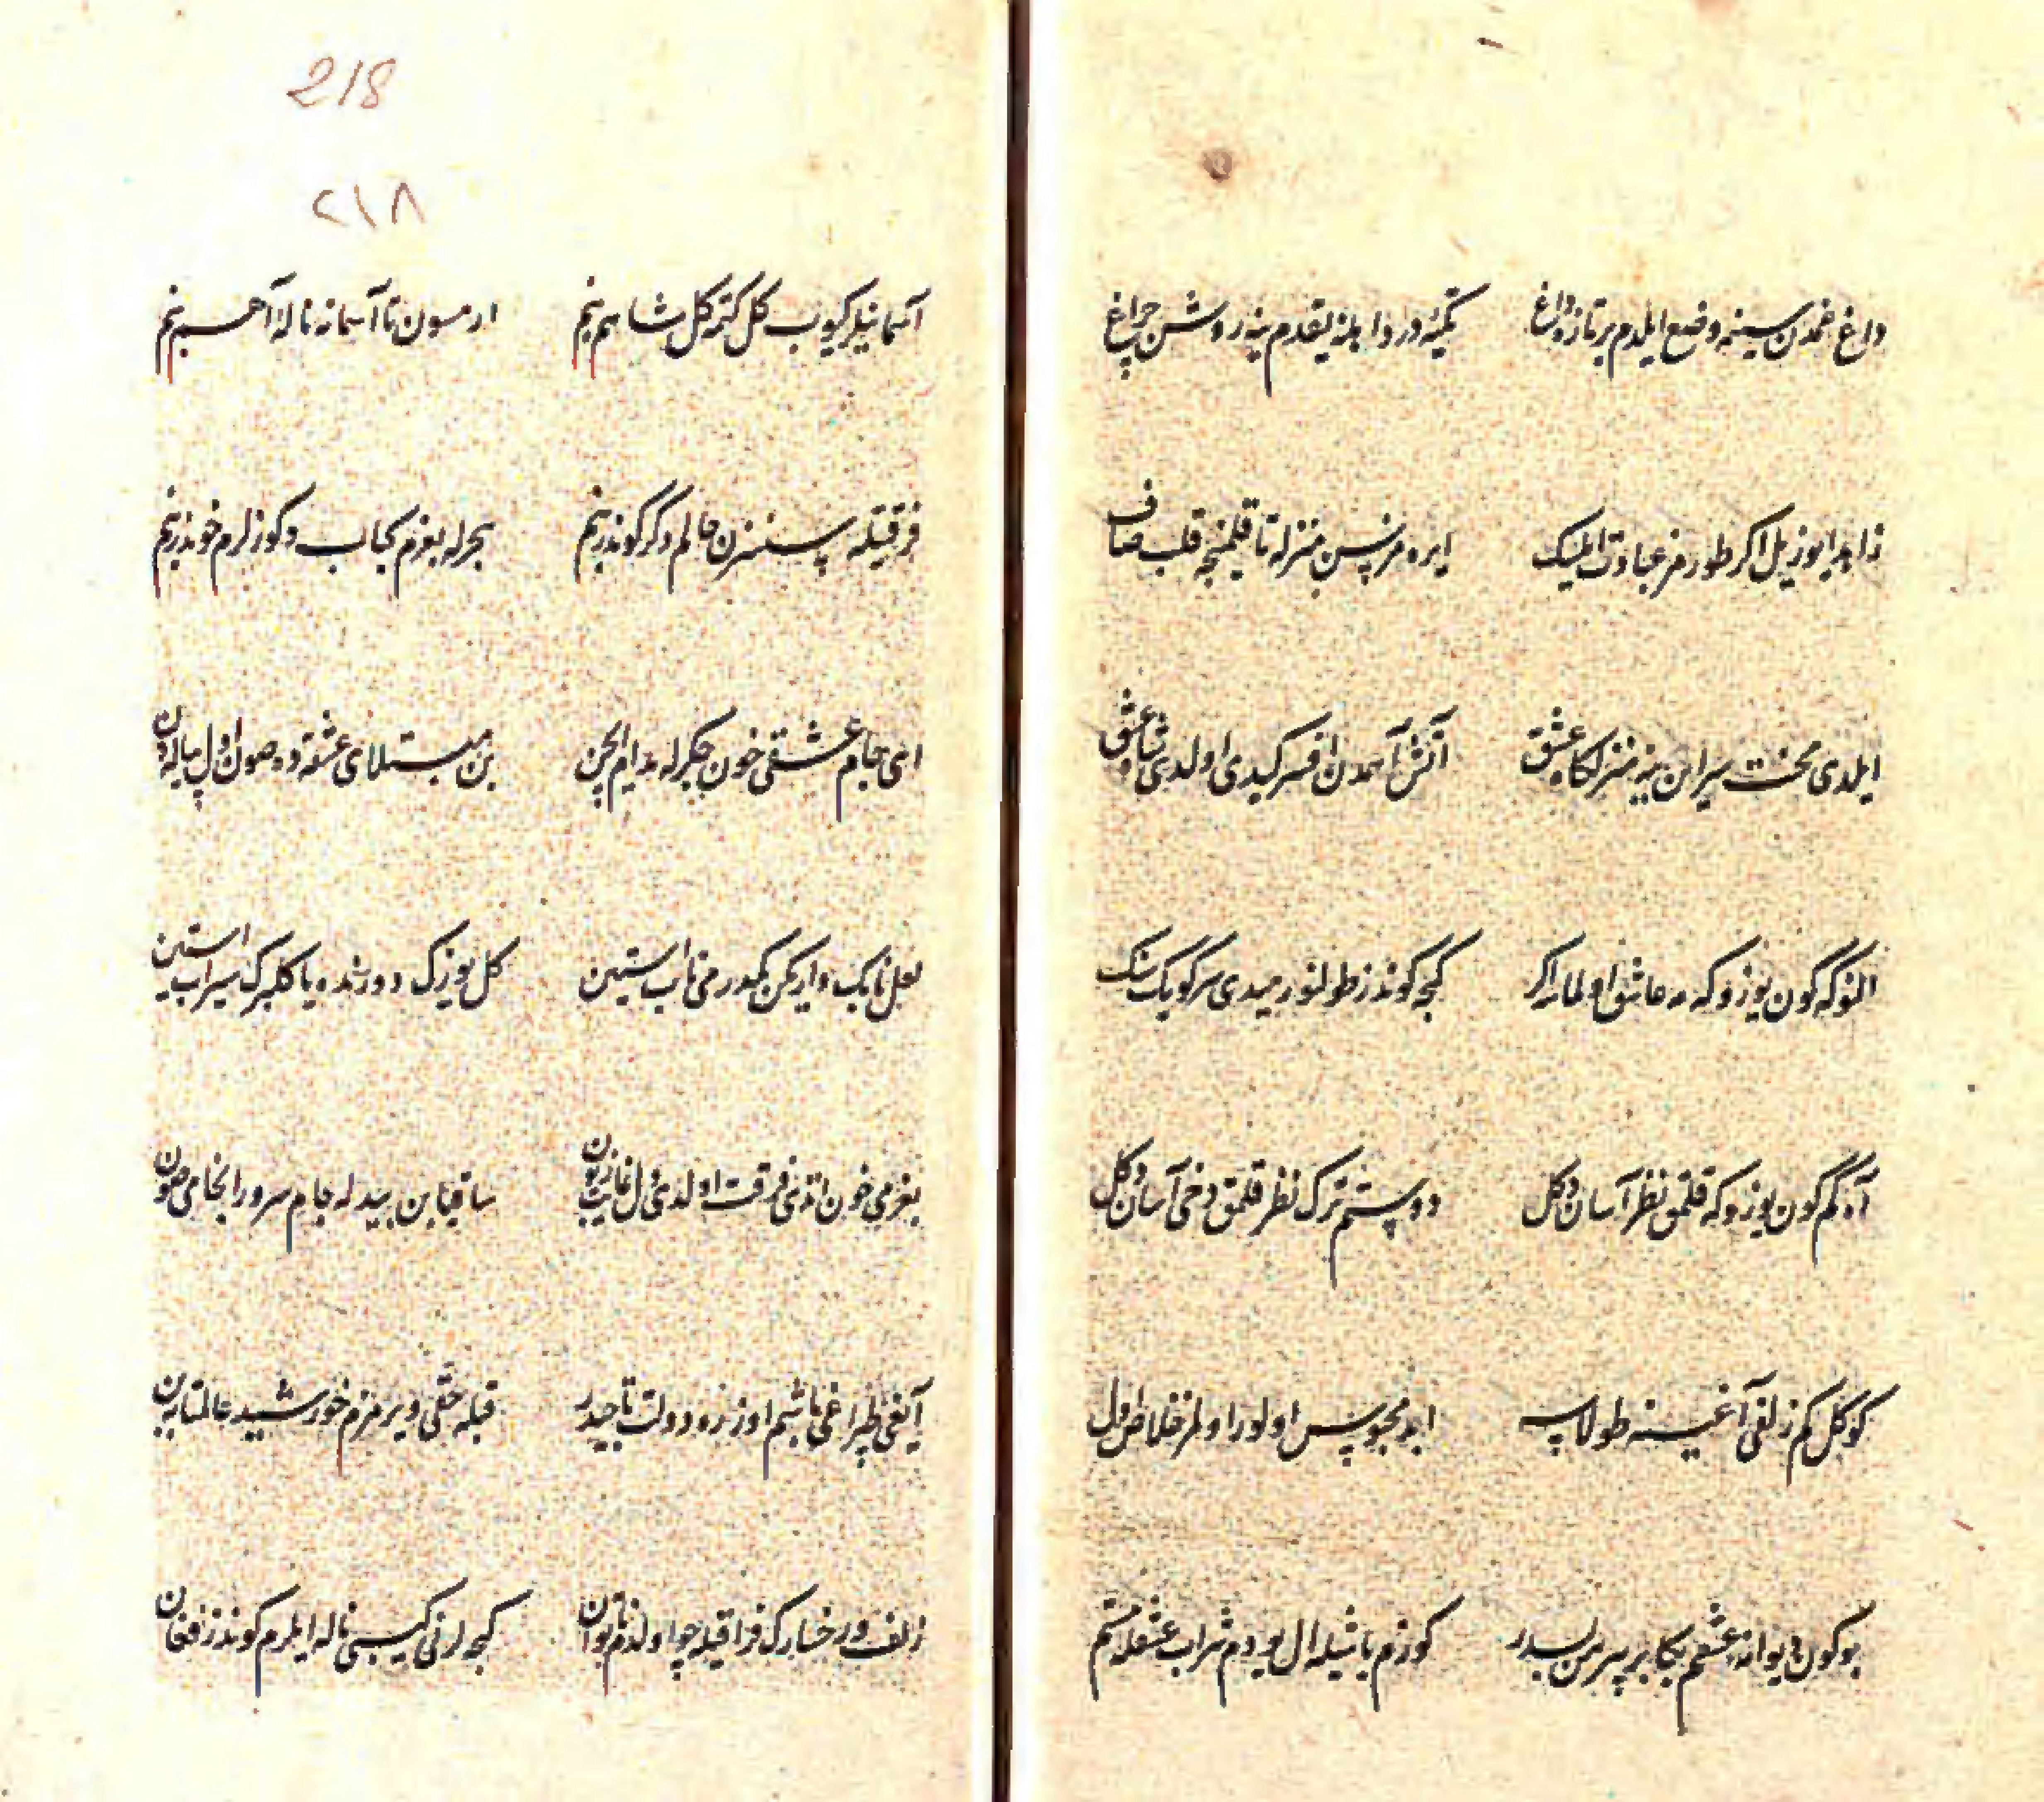 داغ غمدن سینه وضع ایلدم بر تازه داغ
تکیهٔ درد ایلنه یقدم ینه روشن چراغ
زاهدا یوز یل اکر طورمز عبادت ایلیک
ایره مزسن منزله تا قلمنجه قلب صاف
ایلدی تخت سر این ینه منزلکاه عشق
آتش آهمدن افسر کیدی اولدی شاه عشق
النوکه کون یوزوکه مه عاشق اولمادی اکر
کیجه کوندز طولنورمیدی سر کویک سنک
آه کم کون یوزوکه قلمق نظر آسان دکل
دوستم ترک نظر قلمق دخی آسان دکل
کوکل کم زلفی آغینه طولاشه
ابد محبوس اولور اولمز خلاص اول
بو کون دیوانهٔ عشقم بکا بر پیرهن بسدر
کوزم یاشیله ال یودم شراب عشقله مستم
218
۲۱۸
آسمانیلر کیوب کل کتمه کل شاهم بنم
ارمسون تا آسمانه نالهٔ آهم بنم
فرقتکله سنسزن حالم دکرکوندر بنم
هجرله بغرم کباب و کوزلرم خوندر بنم
ای جام عشقی خون جکرله مدام ایچن
بن مبتلای عشقه ده صون اول پیاله دن
لعل نابک وارکن کمدر می ناب استین
کل یوزک دورنده یا کلبرک سیراب استین
بغرمی خون اتدی فرقت اولدی دل
ساقیا بن بیدله جام سرور انجامی صون
آیغی طپراغی باشم اوزره دولت تاجیدر
قبله حقی ویرمزم خورشید عالمتابه بن
زلف و رخسارک فراقیله چو اولدم ناتوان
کیجه لر نی کیبی ناله ایلرم کوندز فغان